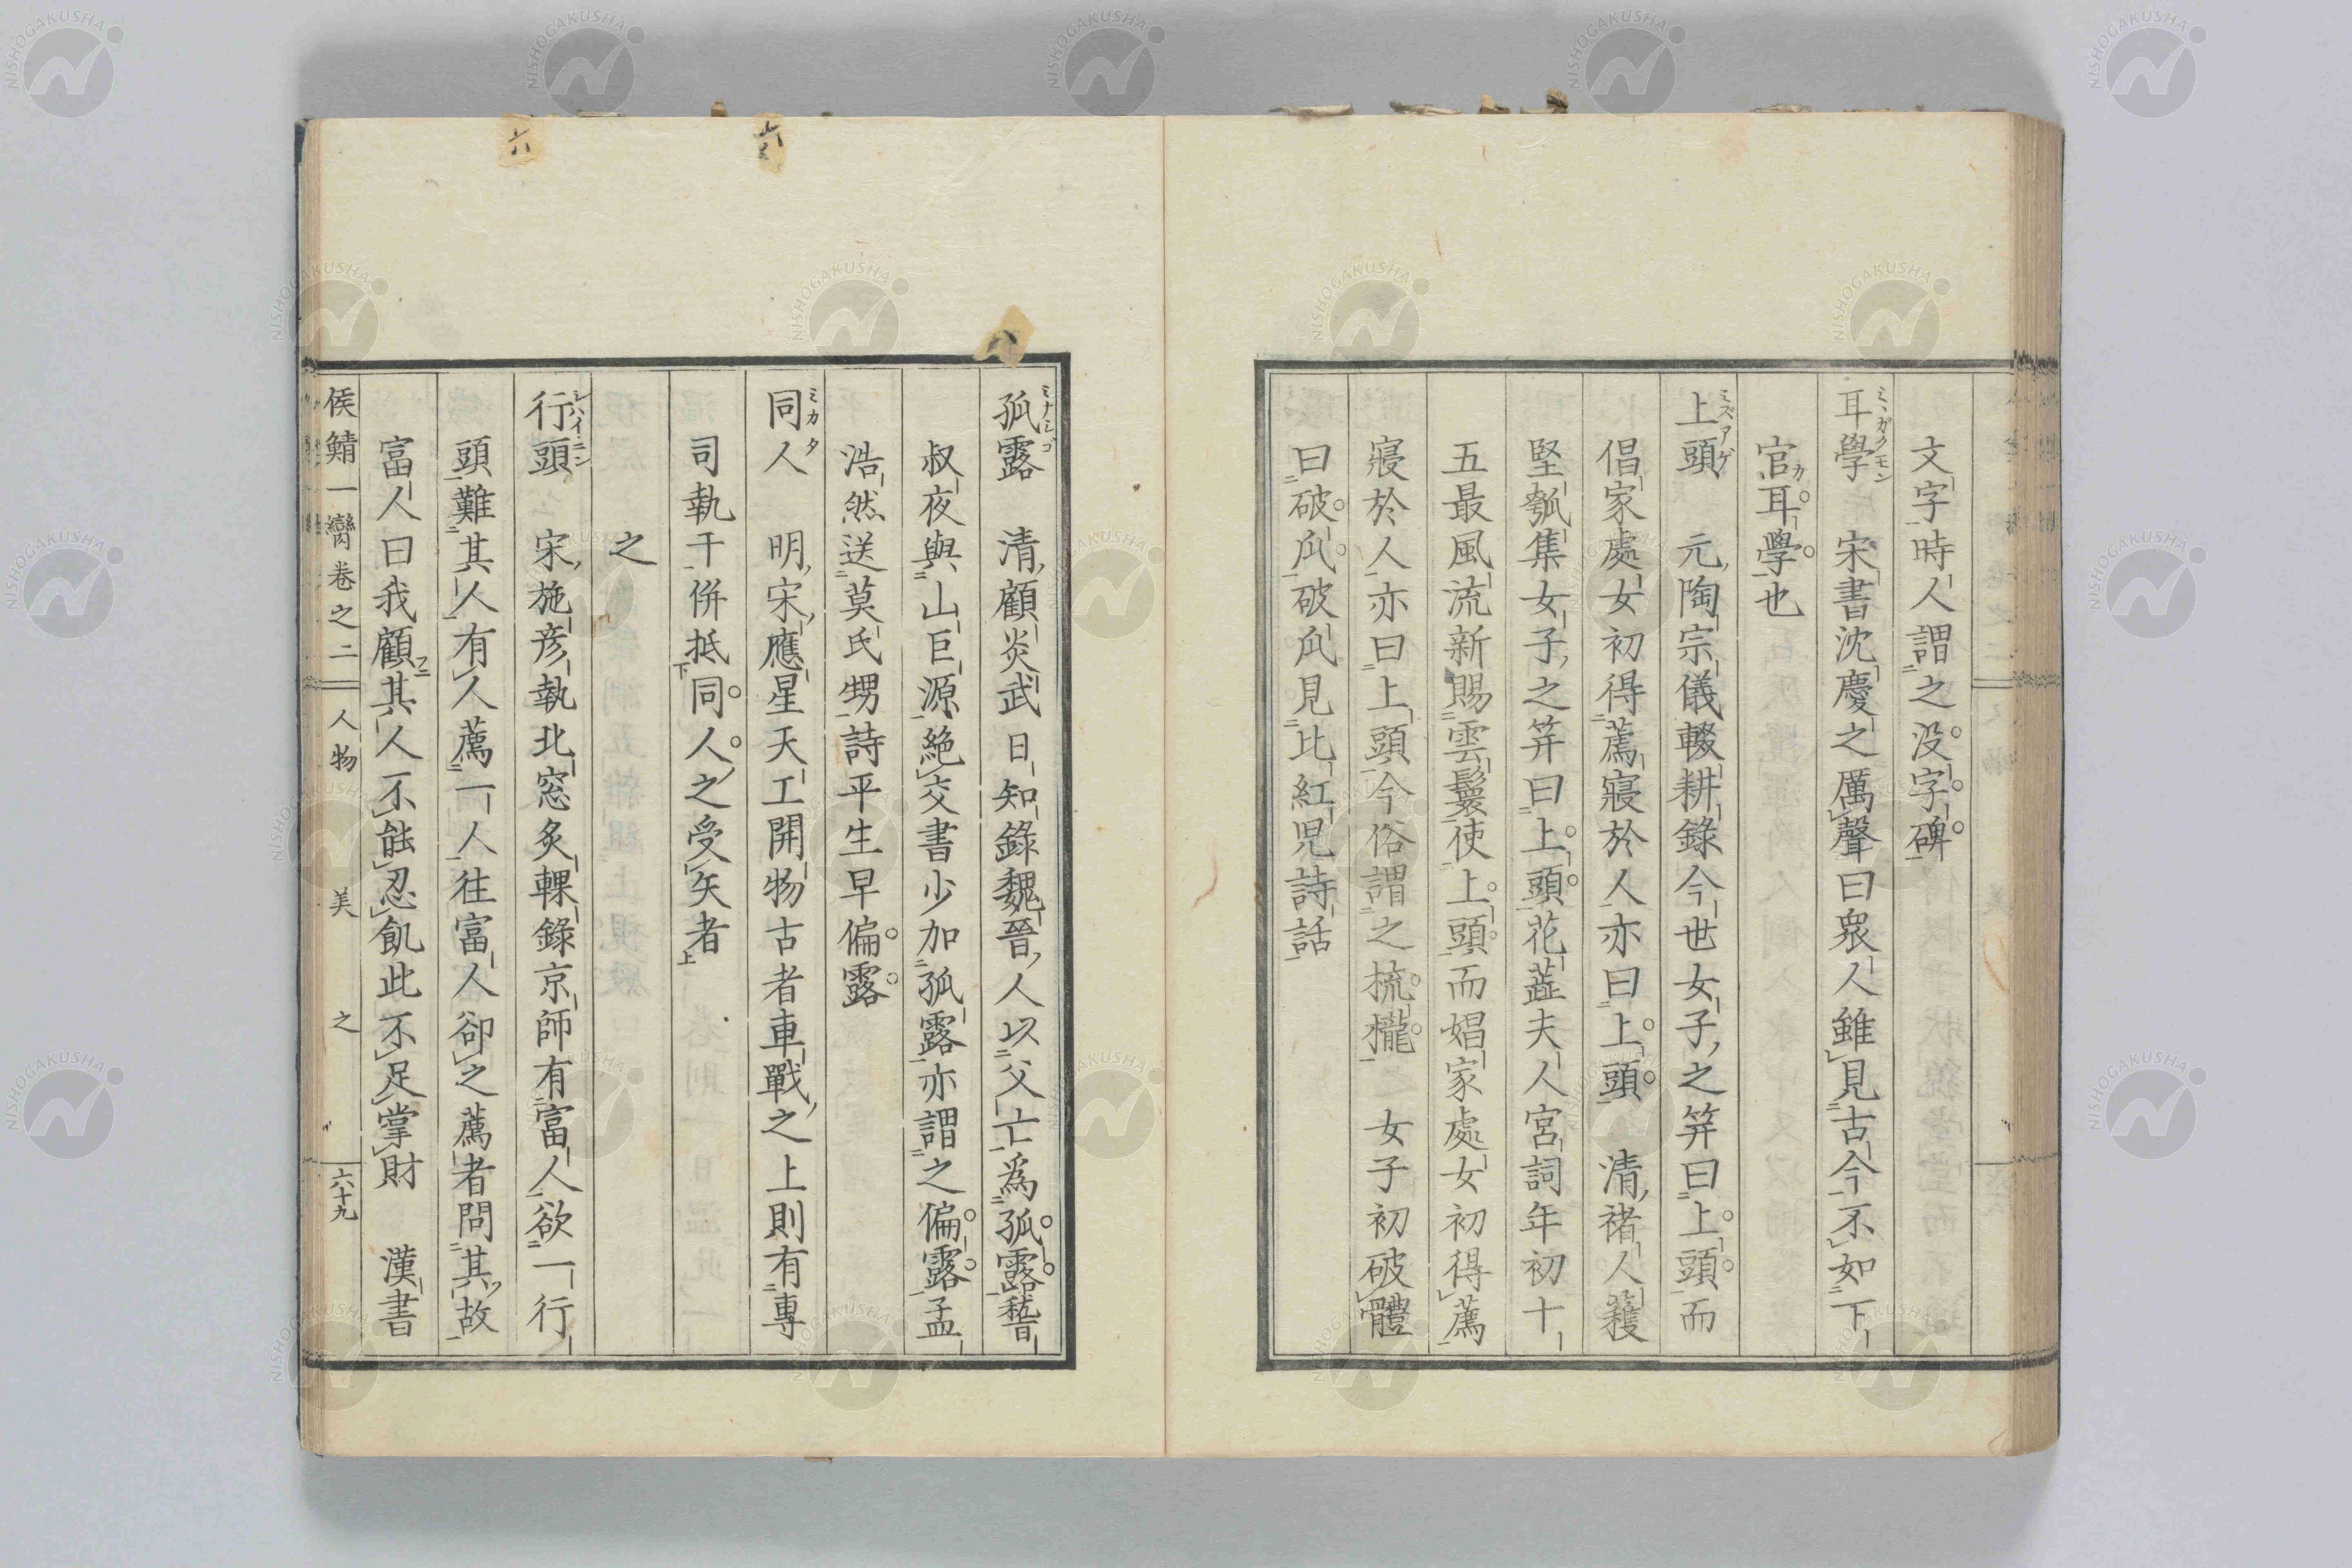 文字時人謂之没字碑
耳學　宋書沈慶之厲聲曰衆人雖見古今不如下
官耳學也
上頭　元陶宗儀輟耕錄今世女子之笄曰上頭而
倡家處女初得薦寢於人亦曰上頭　清褚人穫
堅瓠集女子之笄曰上頭花蘂夫人宮詞年初十
五最風流新賜雲鬟使上頭而娼家處女初得薦
寢於人亦曰上頭今俗謂之梳櫳　女子初破體
曰破瓜破瓜見比紅児詩話
孤露　清顧炎武日知錄魏晉人以父亡爲孤露嵇
叔夜與山巨源絶交書少加孤露亦謂之偏露孟
浩然送莫氏甥詩平生早偏露
同人　明宋應星天工開物古者車戰之上則有專
司執干併抵同人之受矢者
之
行頭　宋施彦執北窓炙輠錄京師有富人欲一行
頭難其人有人薦一人往富人卻之薦者問其故
富人曰我顧其人不能忍飢此不足掌財　漢書
侯鯖一臠卷之二　人物　美　之　六十九
ミヽガクモン
カ
ミズアゲ
ミナシゴ
ミカタ
シハイニン
六
八
NISHOGAKUSHA